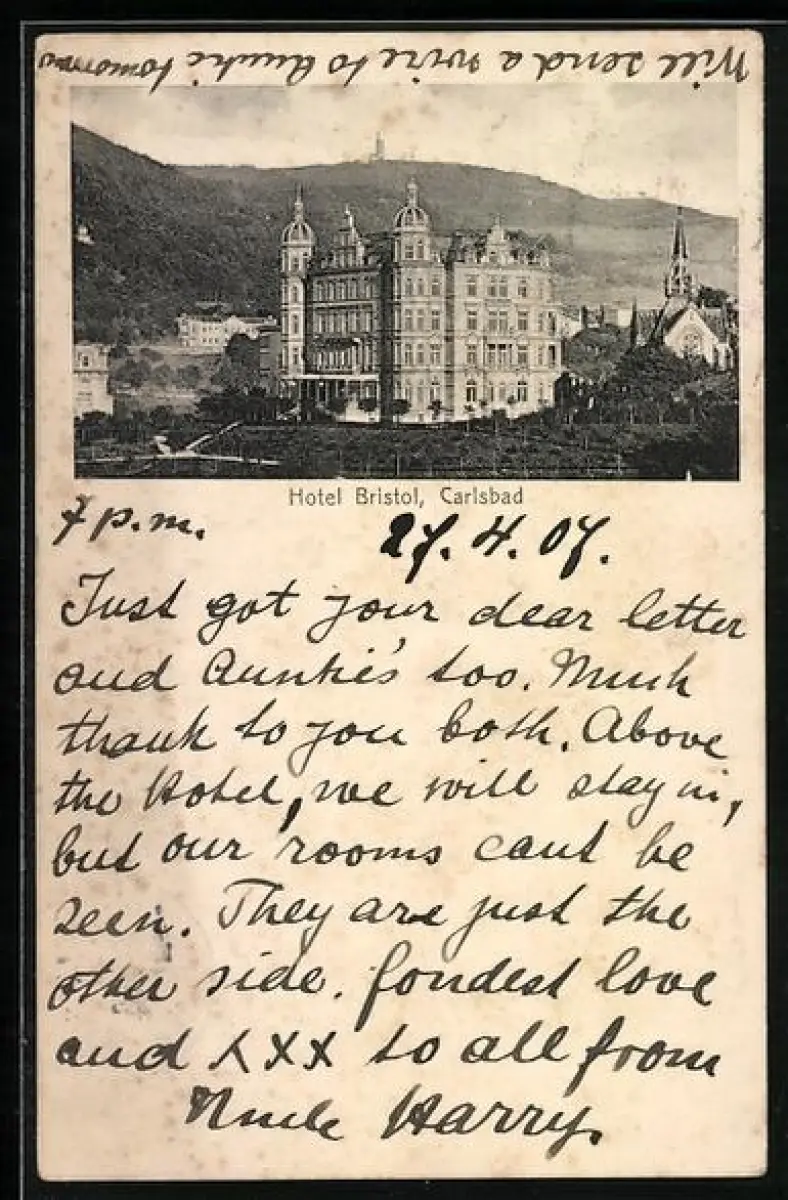 Will send a wire to Auntie tomorrow
Hotel Bristol, Carlsbad
7 p.m. 27. 4. 07.
Just got your dear letter
and Auntie's too. Much
thank to you both. Above
the Hotel, we will stay in,
but our rooms cant be
seen. They are just the
other side. fondest love
and XXX to all from
Uncle Harry.